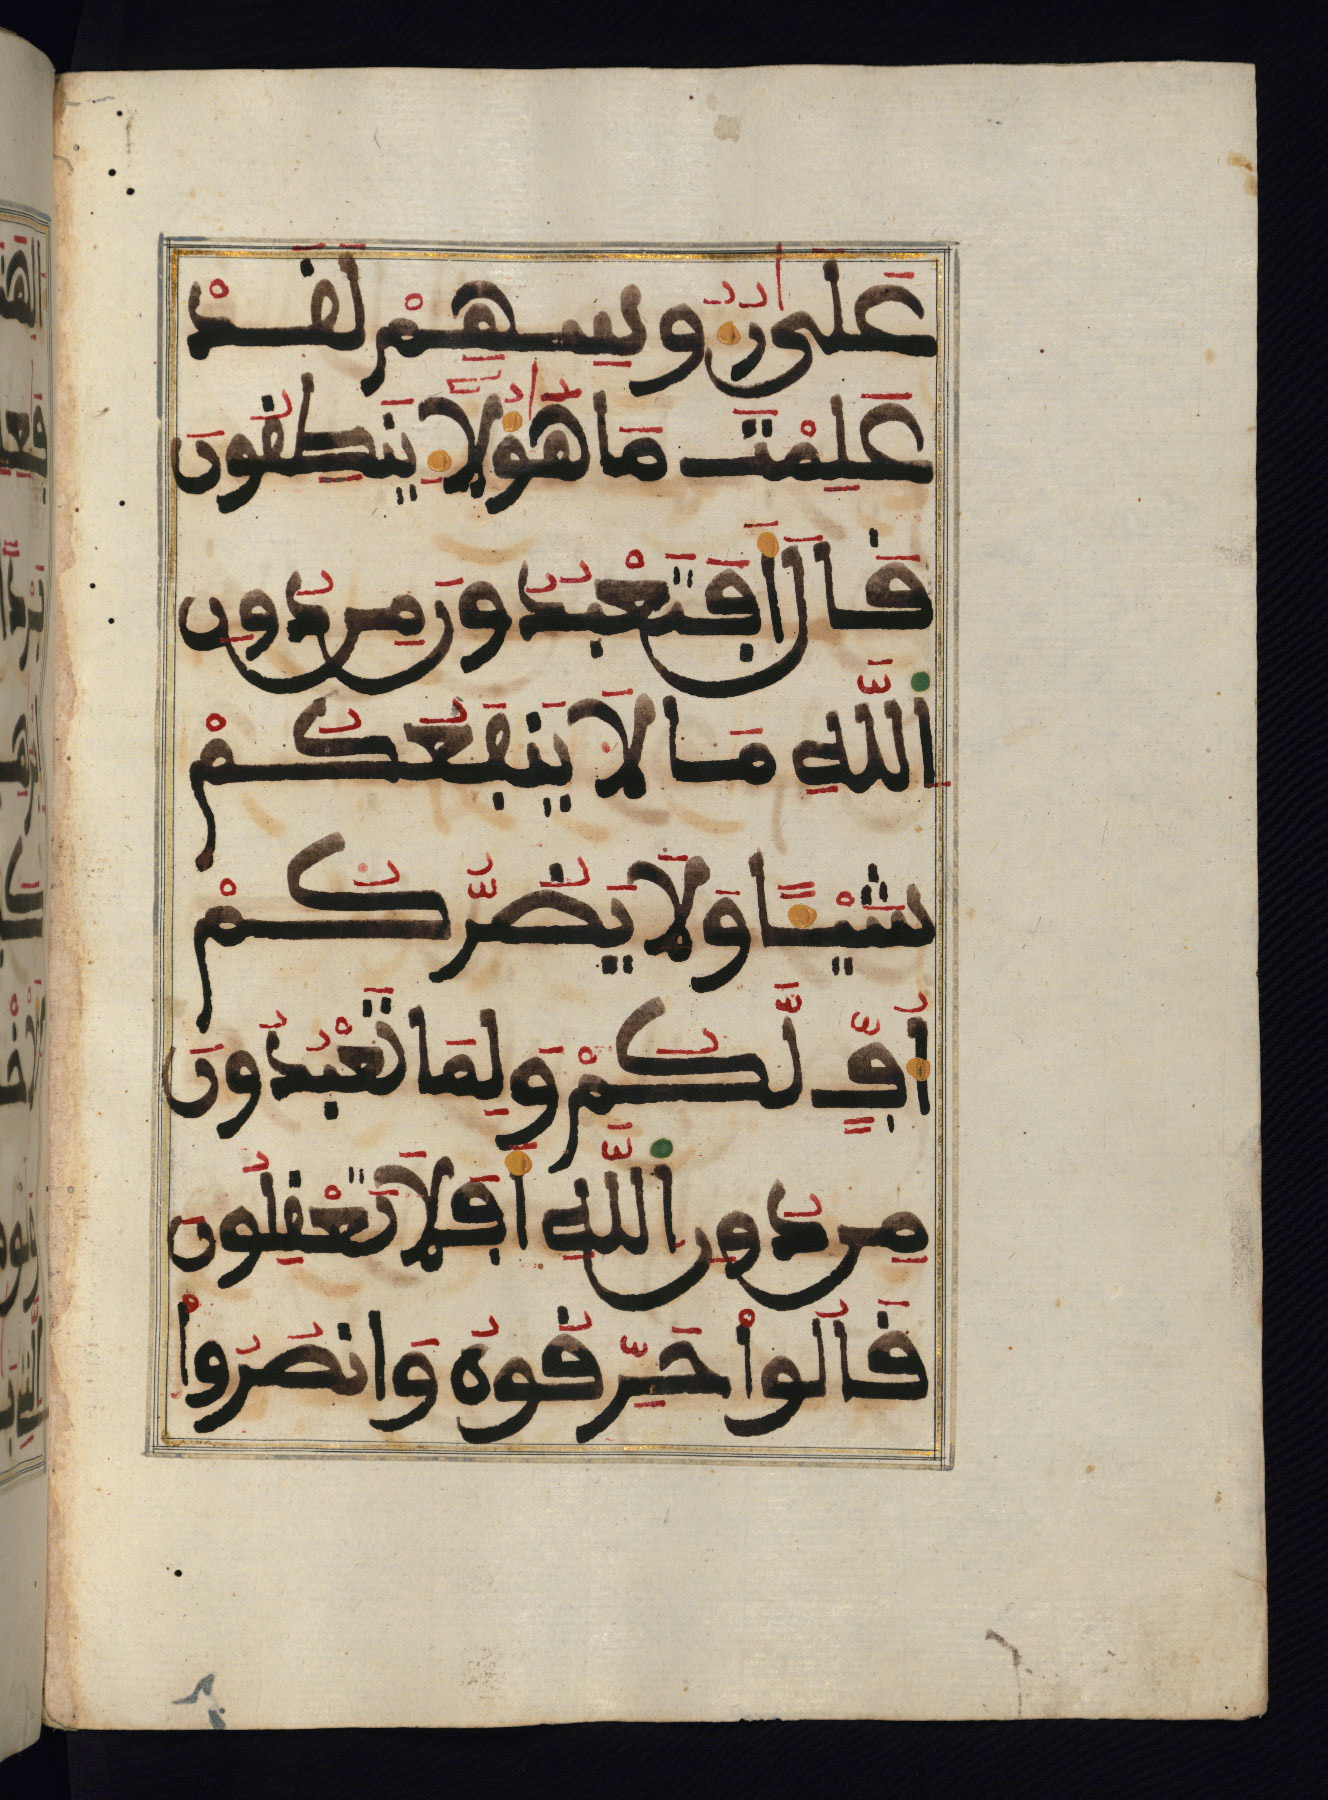 عَلَىٰ رُءُوسِهِمْ لَقَدْ
عَلِمْتَ مَا هَٰؤُلَاءِ يَنطِقُونَ
قَالَ أَفَتَعْبُدُونَ مِن دُونِ
اللَّهِ مَا لَا يَنفَعُكُمْ
شَيْئًا وَلَا يَضُرُّكُمْ
أُفٍّ لَّكُمْ وَلِمَا تَعْبُدُونَ
مِن دُونِ اللَّهِ أَفَلَا تَعْقِلُونَ
قَالُوا حَرِّقُوهُ وَانصُرُوا